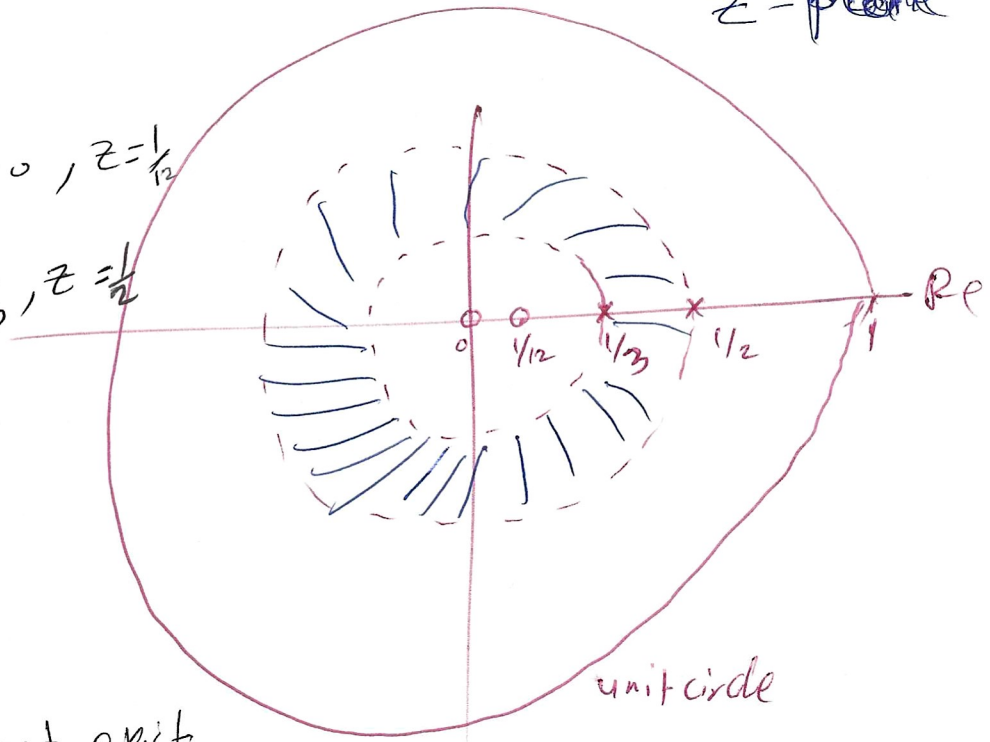 z-plane
0, z=1/12
, z=1/2
Re
0 1/12 1/3 1/2 1
unit circle